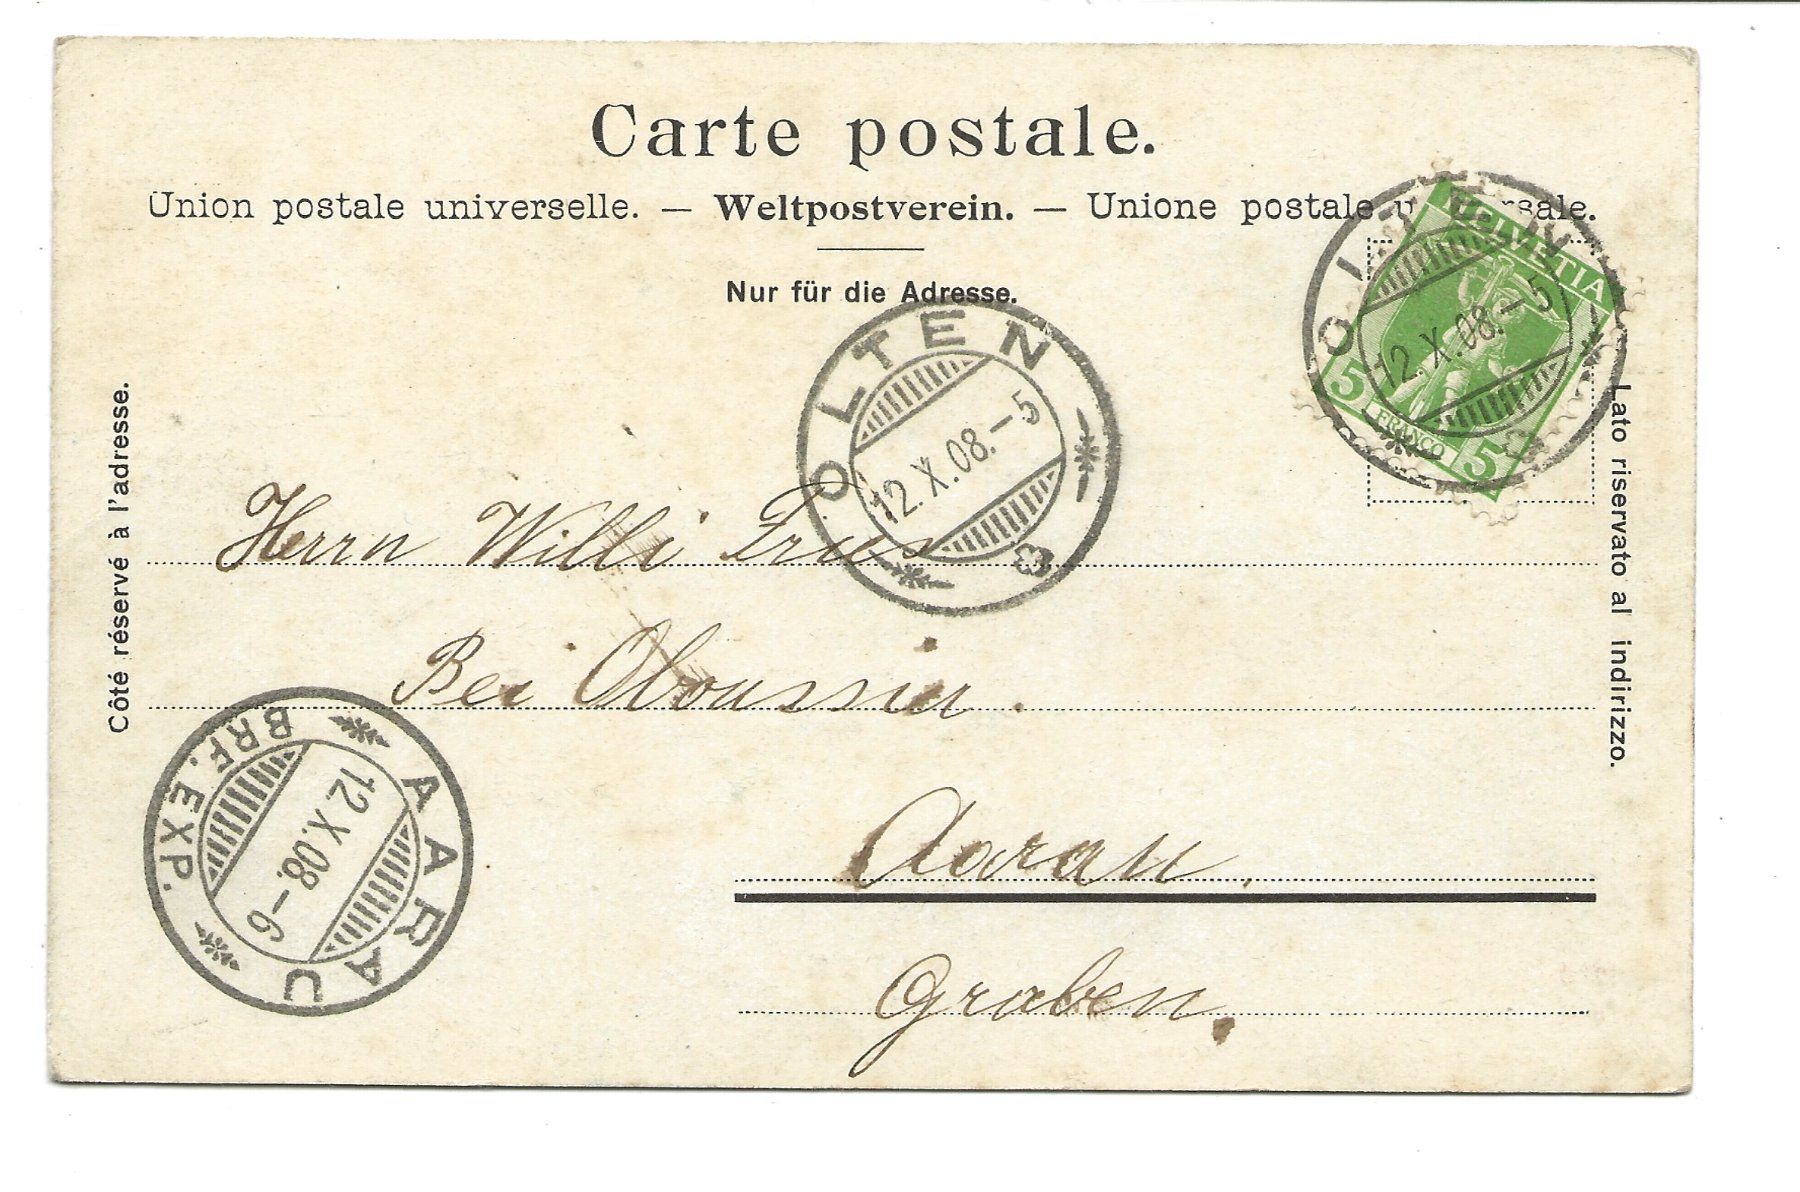 Carte postale.
Union postale universelle. — Weltpostverein. — Unione postale universale.
Nur für die Adresse.
Côté réservé à l'adresse.
Lato riservato al indirizzo.
HELVETIA
5 FRANCO 5
OLTEN
12.X.08.-5
OLTEN
12.X.08.-5
Herrn Willi
Bei Oboussier.
Aarau.
Graben.
AARAU
BRF. EXP.
12.X.08.-6